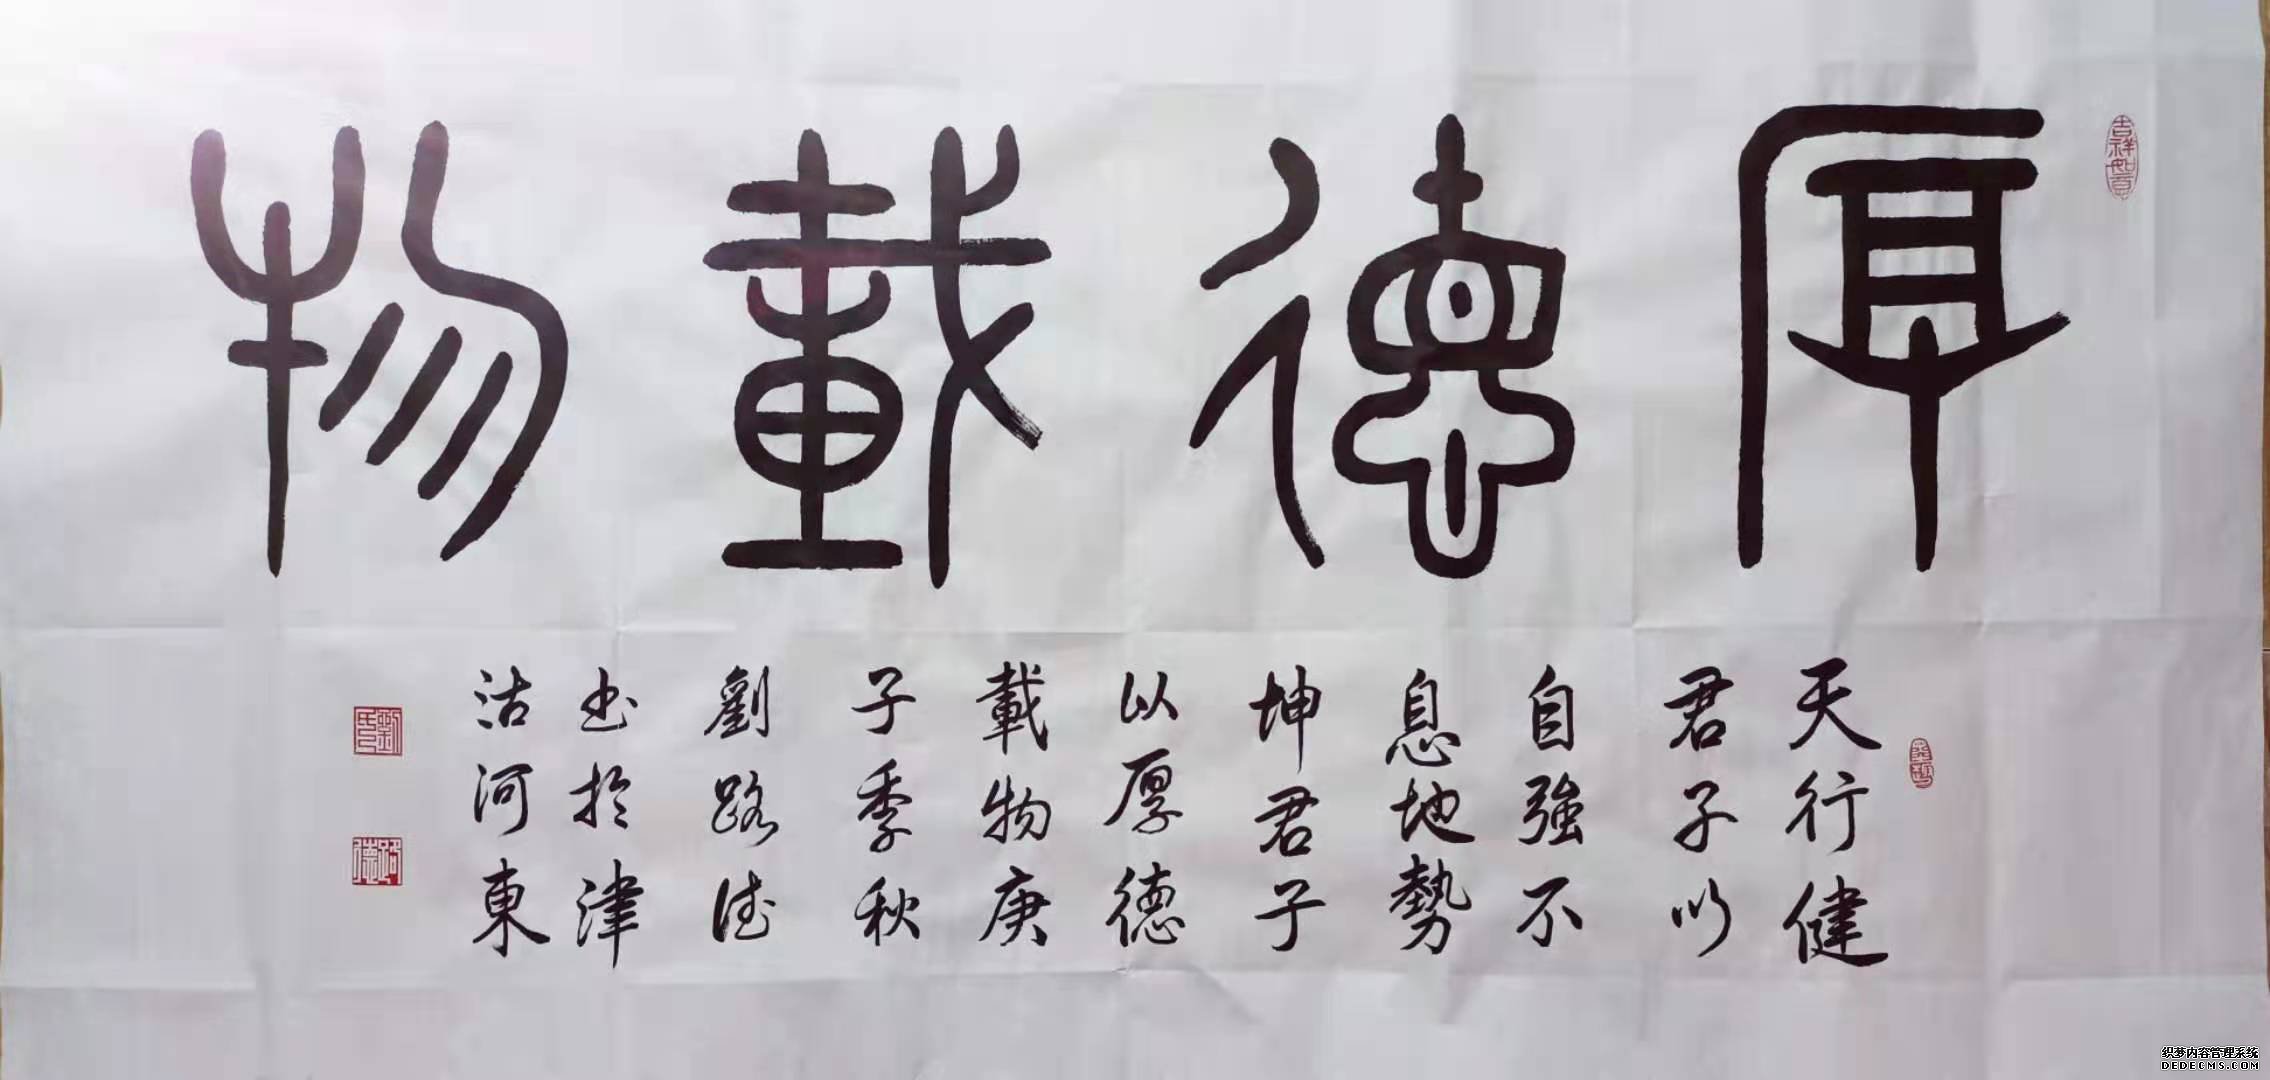 厚德載物
吉祥如意
天行健
君子以
自強不
息地勢
坤君子
以厚德
載物庚
子季秋
劉路德
书於津
沽河東
劉氏
路德
织梦内容管理系统
DEDECMS.COM